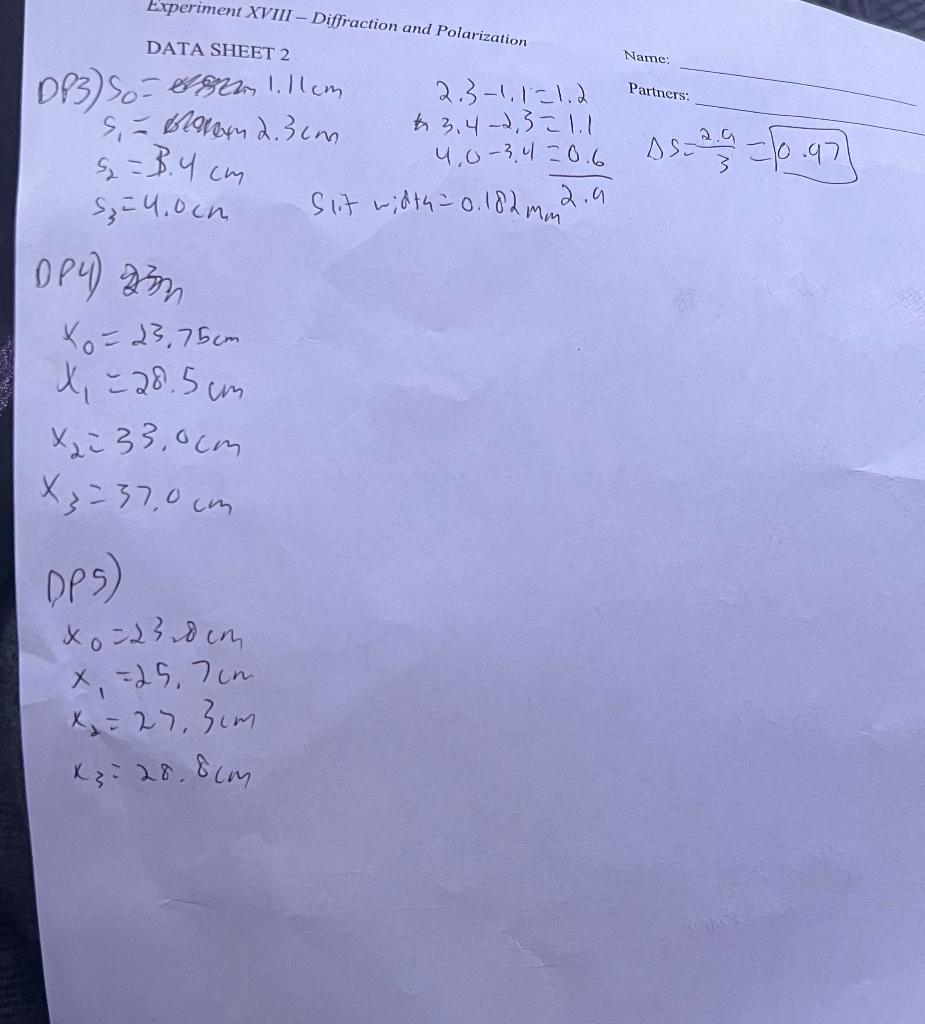 Experiment XVIII – Diffraction and Polarization
DATA SHEET 2
Name:
Partners:
DP3) S₀ = 1.11cm
S₁ = 2.3cm
S₂ = 3.4 cm
S₃ = 4.0cm
2.3-1.1=1.2
3.4-2.3=1.1
4.0-3.4=0.6
2.9
ΔS = 2.9/3 = 0.97
Slit width = 0.182 mm
DP4)
X₀ = 23.75cm
X₁ = 28.5 cm
X₂ = 33.0cm
X₃ = 37.0 cm
DP5)
X₀ = 23.8cm
X₁ = 25.7cm
X₂ = 27.3cm
X₃ = 28.8cm